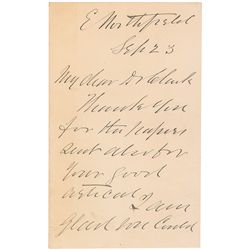 E Northfield
Sep 23
My dear Dr Clark
Thank you
for the papers
sent also for
your good
article I am
glad one could